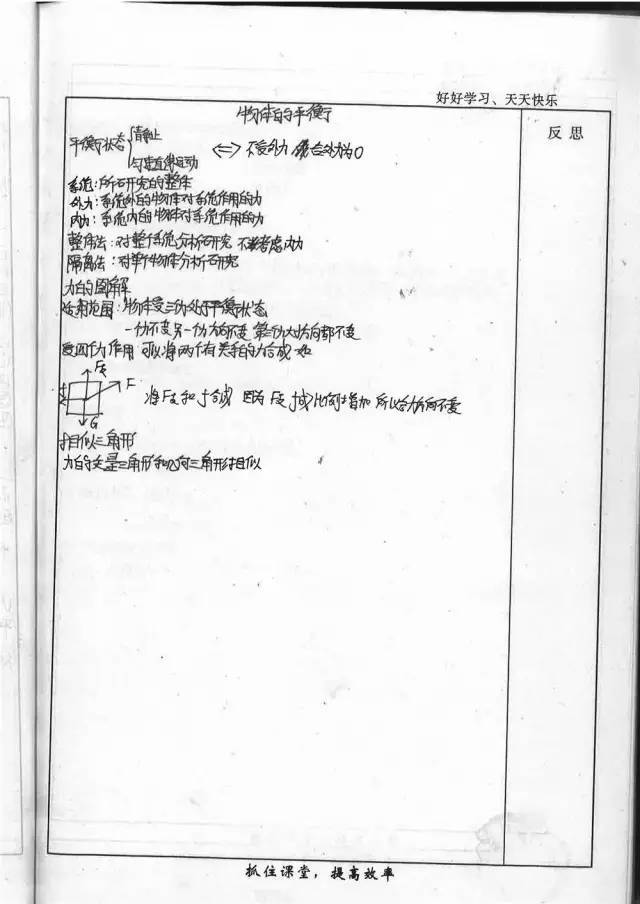 好好学习、天天快乐
反思
物体的平衡
平衡状态{静止
匀速直线运动
<=> 不受外力 或合外力为0
系统:所研究的整体
外力:系统外的物体对系统作用的力
内力:系统内的物体对系统作用的力
整体法:对整个系统分析研究 不考虑内力
隔离法:对单个物体分析研究
力的图解
适用范围:物体受三力处于平衡状态
一力不变 另一力方向不变 第三力大小方向都不变
受四个力作用 可以将两个有关系的力合成 如
F支
F
f
G
将F支和f合成 因为F支 f成比例增加 所以合力方向不变
相似三角形
力的矢量三角形和几何三角形相似
抓住课堂，提高效率